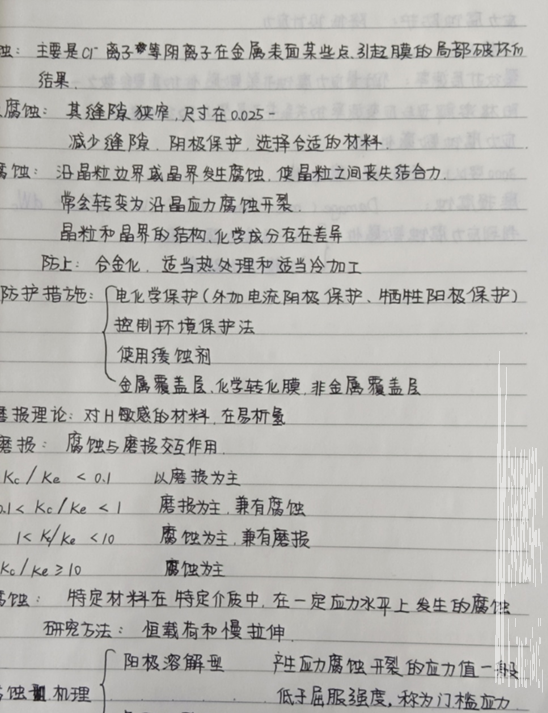 蚀：主要是Cl⁻离子等阴离子在金属表面某些点引起膜的局部破坏的
结果.
腐蚀：其缝隙狭窄,尺寸在0.025-
减少缝隙,阴极保护,选择合适的材料.
腐蚀：沿晶粒边界或晶界发生腐蚀,使晶粒之间丧失结合力.
常会转变为沿晶应力腐蚀开裂.
晶粒和晶界的结构,化学成分存在差异
防止：合金化、适当热处理和适当冷加工
防护措施：电化学保护(外加电流阴极保护、牺牲阳极保护)
控制环境保护法
使用缓蚀剂
金属覆盖层,化学转化膜,非金属覆盖层
磨损理论：对H敏感的材料,在易析氢
磨损：腐蚀与磨损交互作用.
Kc/Ke < 0.1 以磨损为主
0.1 < Kc/Ke < 1 磨损为主,兼有腐蚀
1 < K/Ke < 10 腐蚀为主,兼有磨损
Kc/Ke ≥ 10 腐蚀为主
腐蚀：特定材料在特定介质中,在一定应力水平上发生的腐蚀
研究方法：恒载荷和慢拉伸.
阳极溶解型 产生应力腐蚀开裂的应力值一般
蚀 机理 低于屈服强度,称为门槛应力